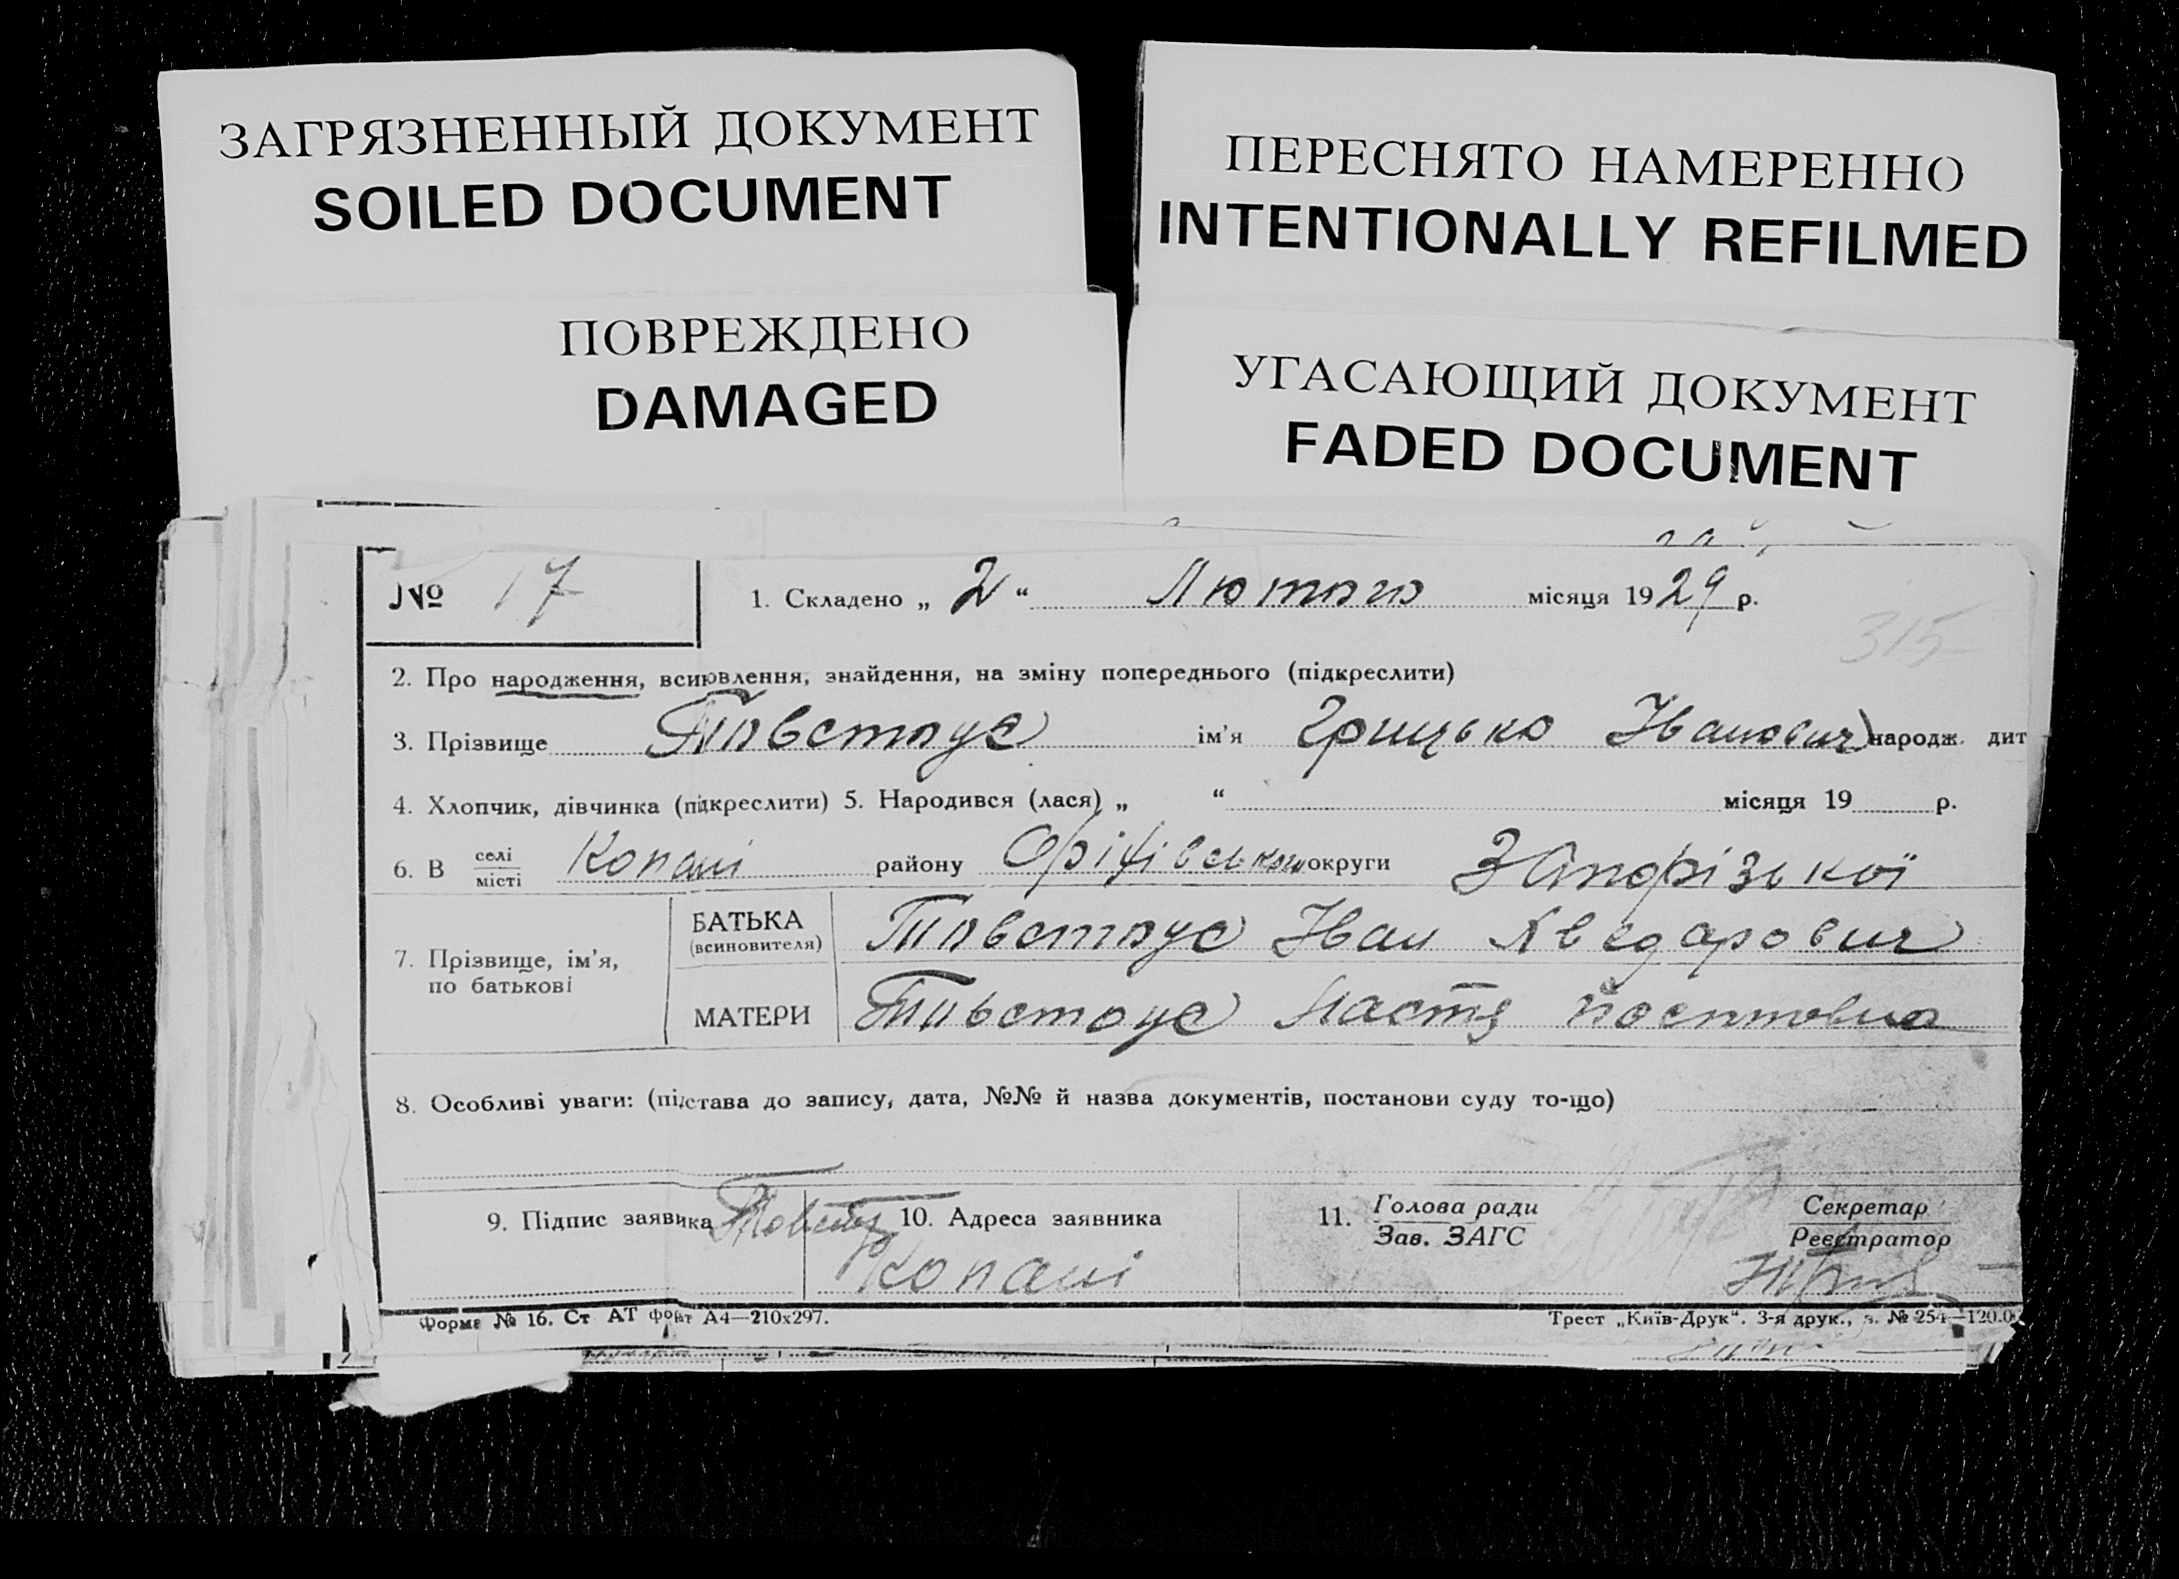 ЗАГРЯЗНЕННЫЙ ДОКУМЕНТ
SOILED DOCUMENT
ПЕРЕСНЯТО НАМЕРЕННО
INTENTIONALLY REFILMED
ПОВРЕЖДЕНО
DAMAGED
УГАСАЮЩИЙ ДОКУМЕНТ
FADED DOCUMENT
№ 17
1. Складено „ 2 “ Лютого місяця 1929 р.
315
2. Про народження, всиновлення, знайдення, на зміну попереднього (підкреслити)
3. Прізвище Товстоус ім'я Грицько Іванович народж. дит
4. Хлопчик, дівчинка (підкреслити) 5. Народився (лася) „ “ місяця 19 р.
6. В селі місті Копані району Оріхівського округи Запорізької
7. Прізвище, ім'я, по батькові
БАТЬКА (всиновителя) Товстоус Іван
МАТЕРИ Товстоус Настя
8. Особливі уваги: (підстава до запису, дата, №№ й назва документів, постанови суду то-що)
9. Підпис заявника
10. Адреса заявника
Копані
11. Голова ради
Зав. ЗАГС
Секретар
Реєстратор
Форма № 16. Ст АТ формат А4—210х297.
Трест „Київ-Друк“. 3-я друк., з. № 254—120.0